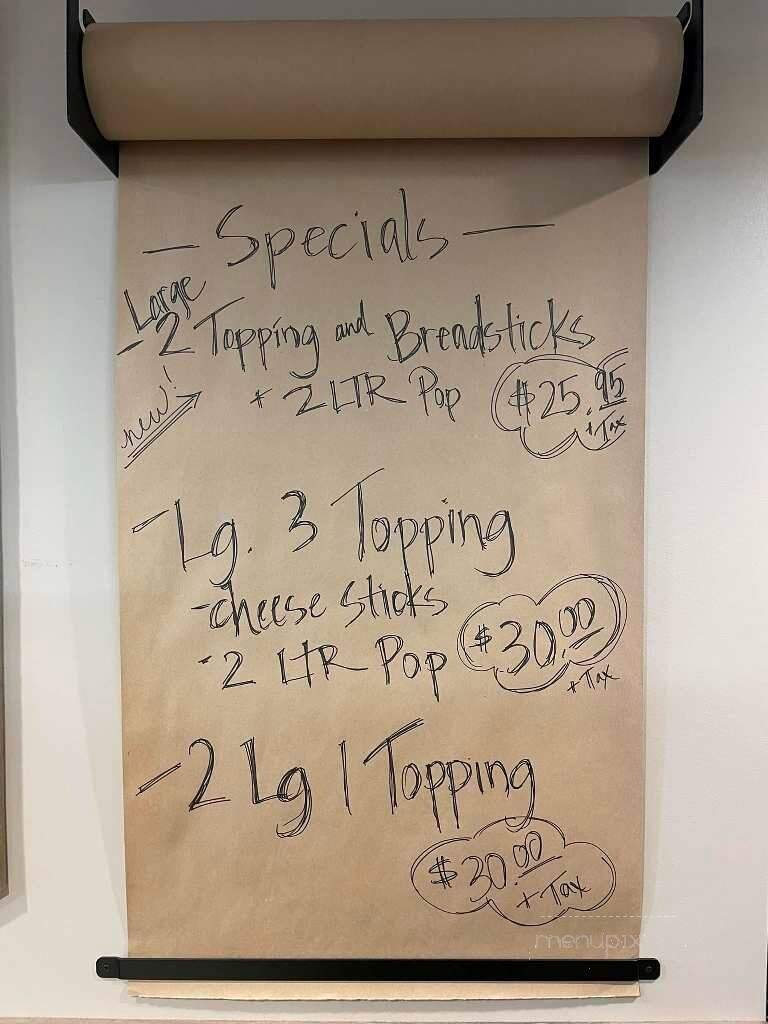 — Specials —
Large
- 2 Topping and Breadsticks
new!
+ 2 LTR Pop
$25.95
+Tax
- Lg. 3 Topping
- cheese sticks
- 2 LTR Pop
$30.00
+ Tax
- 2 Lg 1 Topping
$30.00
+ Tax
menupix